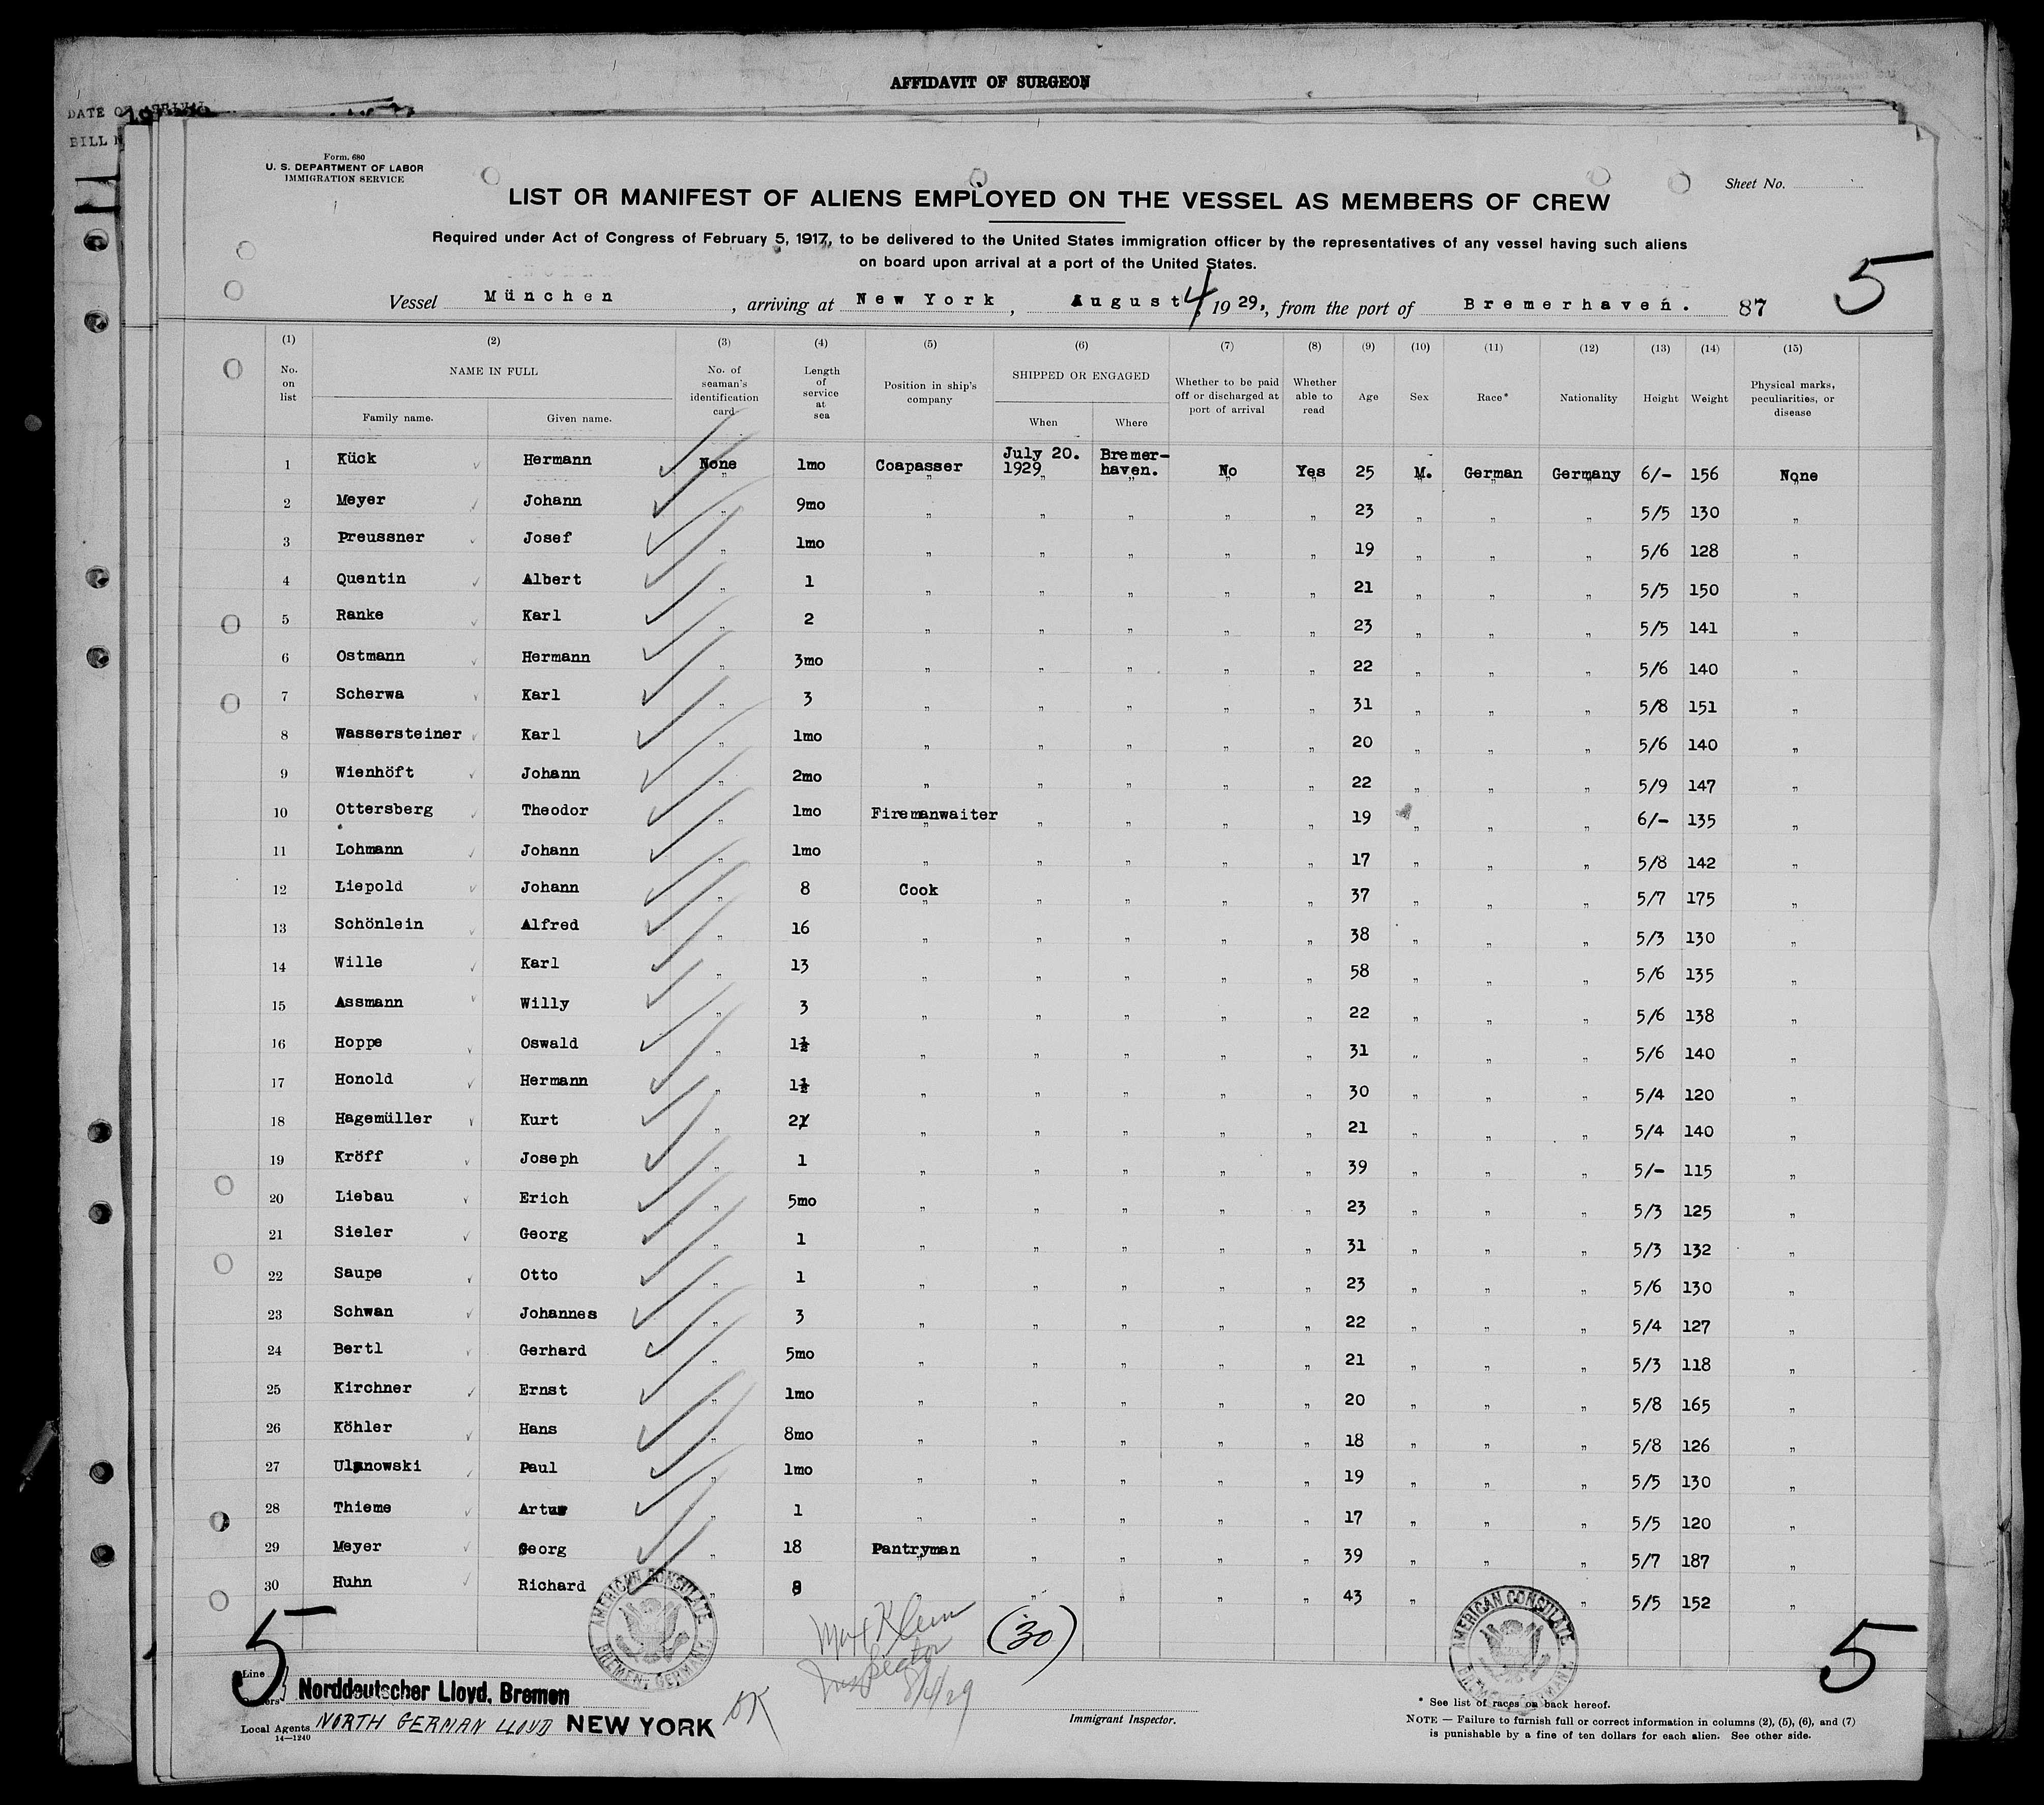 AFFIDAVIT OF SURGEON
DATE OF ARRIVAL
BILL N
Form. 680
U. S. DEPARTMENT OF LABOR
IMMIGRATION SERVICE
Sheet No.
LIST OR MANIFEST OF ALIENS EMPLOYED ON THE VESSEL AS MEMBERS OF CREW
Required under Act of Congress of February 5, 1917, to be delivered to the United States immigration officer by the representatives of any vessel having such aliens
on board upon arrival at a port of the United States.
5
Vessel München, arriving at New York, August 4, 1929, from the port of Bremerhaven. 87
(1) (2) (3) (4) (5) (6) (7) (8) (9) (10) (11) (12) (13) (14) (15)
No. on list NAME IN FULL Family name. Given name. No. of seaman's identification card Length of service at sea Position in ship's company SHIPPED OR ENGAGED When Where Whether to be paid off or discharged at port of arrival Whether able to read Age Sex Race* Nationality Height Weight Physical marks, peculiarities, or disease
1 Kück Hermann None 1mo Coapasser July 20. 1929 Bremer-haven. No Yes 25 M. German Germany 6/- 156 None
2 Meyer Johann " 9mo " " " " " 23 " " " 5/5 130 "
3 Preussner Josef " 1mo " " " " " 19 " " " 5/6 128 "
4 Quentin Albert " 1 " " " " " 21 " " " 5/5 150 "
5 Ranke Karl " 2 " " " " " 23 " " " 5/5 141 "
6 Ostmann Hermann " 3mo " " " " " 22 " " " 5/6 140 "
7 Scherwa Karl " 3 " " " " " 31 " " " 5/8 151 "
8 Wassersteiner Karl " 1mo " " " " " 20 " " " 5/6 140 "
9 Wienhöft Johann " 2mo " " " " " 22 " " " 5/9 147 "
10 Ottersberg Theodor " 1mo Firemanwaiter " " " " 19 " " " 6/- 135 "
11 Lohmann Johann " 1mo " " " " " 17 " " " 5/8 142 "
12 Liepold Johann " 8 Cook " " " " 37 " " " 5/7 175 "
13 Schönlein Alfred " 16 " " " " " 38 " " " 5/3 130 "
14 Wille Karl " 13 " " " " " 58 " " " 5/6 135 "
15 Assmann Willy " 3 " " " " " 22 " " " 5/6 138 "
16 Hoppe Oswald " 1½ " " " " " 31 " " " 5/6 140 "
17 Honold Hermann " 1½ " " " " " 30 " " " 5/4 120 "
18 Hagemüller Kurt " 2 " " " " " 21 " " " 5/4 140 "
19 Kröff Joseph " 1 " " " " " 39 " " " 5/- 115 "
20 Liebau Erich " 5mo " " " " " 23 " " " 5/3 125 "
21 Sieler Georg " 1 " " " " " 31 " " " 5/3 132 "
22 Saupe Otto " 1 " " " " " 23 " " " 5/6 130 "
23 Schwan Johannes " 3 " " " " " 22 " " " 5/4 127 "
24 Bertl Gerhard " 5mo " " " " " 21 " " " 5/3 118 "
25 Kirchner Ernst " 1mo " " " " " 20 " " " 5/8 165 "
26 Köhler Hans " 8mo " " " " " 18 " " " 5/8 126 "
27 Ulanowski Paul " 1mo " " " " " 19 " " " 5/5 130 "
28 Thieme Artur " 1 " " " " " 17 " " " 5/5 120 "
29 Meyer Georg " 18 Pantryman " " " " 39 " " " 5/7 187 "
30 Huhn Richard " 8 " " " " 43 " " " 5/5 152 "
AMERICAN CONSULATE BREMEN, GERMANY
Max Klein
Inspector
8/4/29
(30)
AMERICAN CONSULATE BREMEN, GERMANY
5
5
Line
Norddeutscher Lloyd, Bremen
OK
Local Agents NORTH GERMAN LLOYD NEW YORK
14—1240
Immigrant Inspector.
* See list of races on back hereof.
NOTE — Failure to furnish full or correct information in columns (2), (5), (6), and (7)
is punishable by a fine of ten dollars for each alien. See other side.